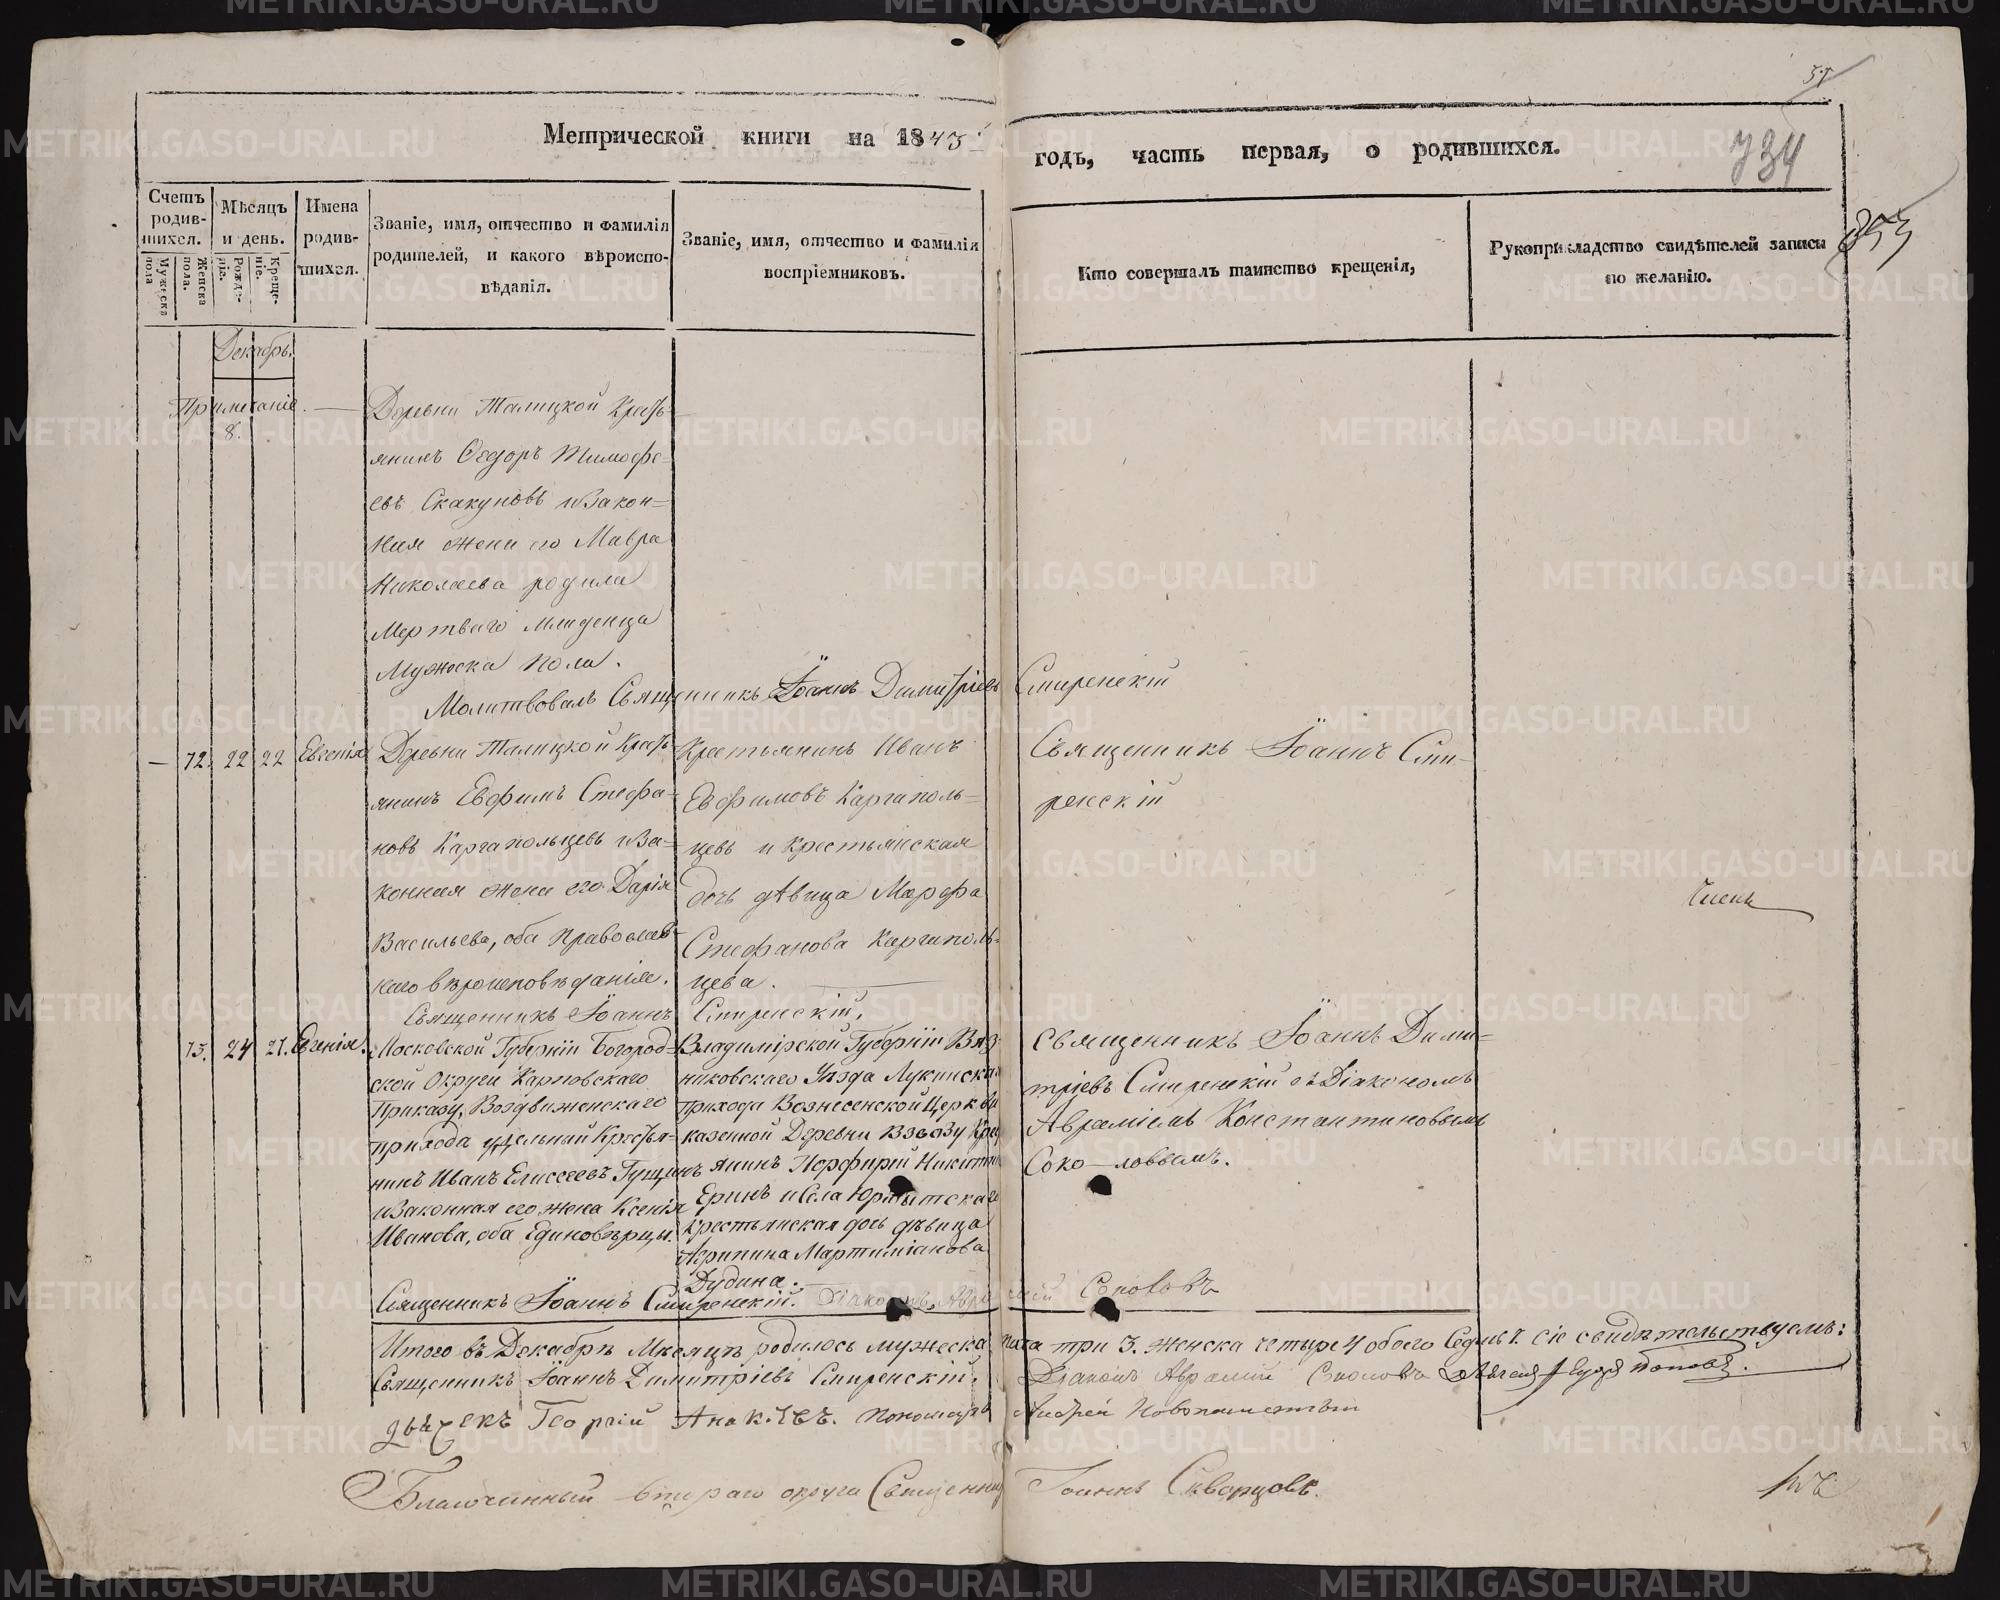 Метрической книги на 1843 годъ, часть первая, о родившихся.
734
Счетъ родившихся.
Мужеска пола
Женска пола.
Мѣсяцъ и день.
Рожденіе.
Крещеніе.
Имена родившихся.
Званіе, имя, отчество и фамилія
родителей, и какого вѣроиспо-
вѣданія.
Званіе, имя, отчество и фамилія
воспріемниковъ.
Кто совершалъ таинство крещенія,
Рукоприкладство свидѣтелей записи
по желанію.
Декабрь.
Примечаніе. 8.
Деревни Талицкой Кресть-
янинъ Ѳеодоръ Тимофе-
евъ Скакуновъ и закон-
ная жена его Мавра
Николаева родила
Мертваго младенца
Мужеска пола.
Молитвовалъ Священникъ Іоаннъ Димитріевъ Смиренскій
— 72. 22 22 Евгенія
Деревни Талицкой Кресть-
янинъ Евфимъ Стефа-
новъ Каргапольцевъ и за-
конная жена его Дарія
Васильева, оба Православ-
наго вѣроисповѣданія.
Крестьянинъ Иванъ
Евфимовъ Каргаполь-
цевъ и крестьянская
дочь дѣвица Марфа
Стефанова Каргаполь-
цева.
Священникъ Іоаннъ Сми-
ренскій
Священникъ Іоаннъ Смиренскій.
73. 24 27. Евгенія.
Московской Губерніи Богород-
ской Округи Карповскаго
Приказу, Воздвиженскаго
прихода удельный Крестья-
нинъ Иванъ Елисеевъ Гущинъ
и законная его жена Ксенія
Иванова, оба Единовѣрцы.
Владимірской Губерніи Вяз-
никовскаго Уѣзда Лукинска
прихода Вознесенской Церкви
казенной Деревни Взвозу Крес
янинъ Порфирій Никитин
Еринъ и Села Юрмытскаго
крестьянская дочь дѣвица
Агрипина Мартиміанова
Дудина.
Священникъ Іоаннъ Дими-
тріевъ Смиренскій съ Діакономъ
Авраміемъ Константиновымъ
Соко-ловымъ.
Священникъ Іоаннъ Смиренскій. Діаконъ Аврамій Соколовъ
Итого въ Декабрѣ Месяцѣ родилось мужеска пола три 3. женска четыре 4 обоего Седмь 7. сіе свидѣтельствуемъ:
Священникъ Іоаннъ Димитріевъ Смиренскій. Діаконъ Аврамій Соколовъ Дьячекъ Егоръ Поповъ.
дьячекъ Георгій Пономарь Андрей
Благочинный втораго округа Священникъ Іоаннъ Скворцовъ.